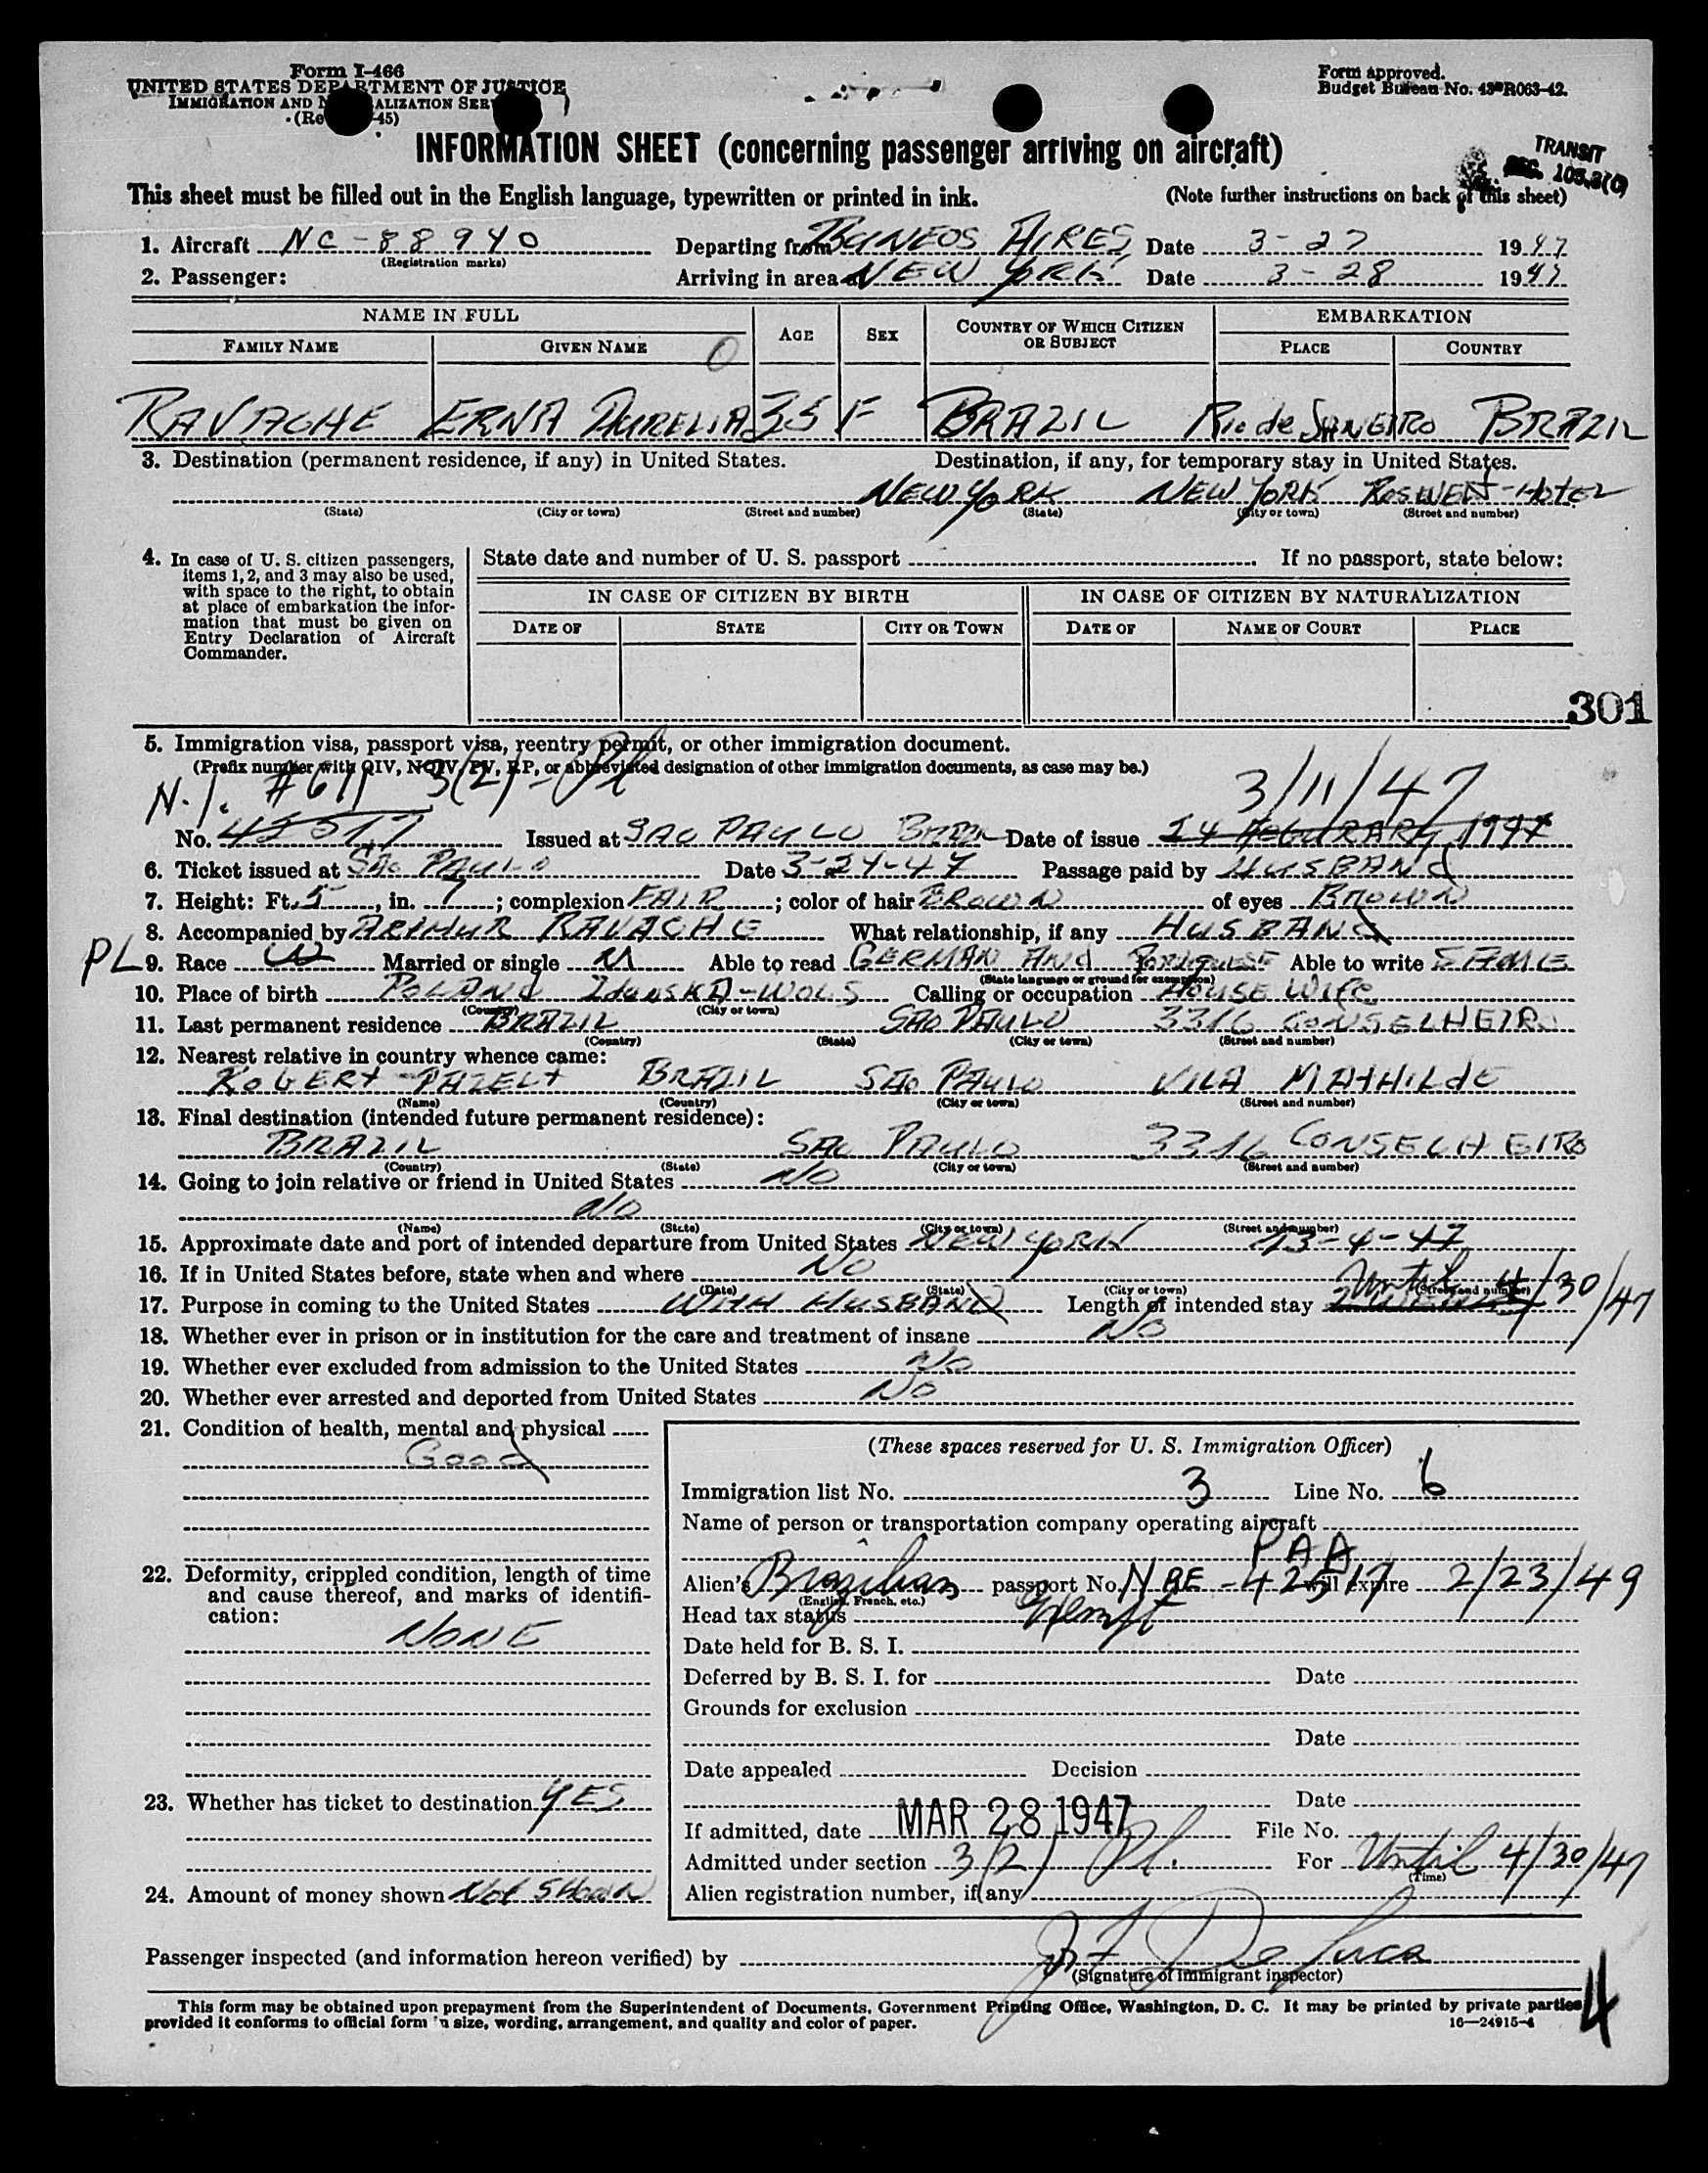 Form I-466
UNITED STATES DEPARTMENT OF JUSTICE
IMMIGRATION AND NATURALIZATION SERVICE
45)
Form approved.
Budget Bureau No. 43-R063-42.
INFORMATION SHEET (concerning passenger arriving on aircraft)
TRANSIT
SEC. 105.3(C)
This sheet must be filled out in the English language, typewritten or printed in ink. (Note further instructions on back of this sheet)
1. Aircraft NC-88940 Departing from BUNEOS AIRES Date 3-27 1947
(Registration marks)
2. Passenger: Arriving in area NEW YORK Date 3-28 1947
NAME IN FULL AGE SEX COUNTRY OF WHICH CITIZEN OR SUBJECT EMBARKATION
FAMILY NAME GIVEN NAME PLACE COUNTRY
RAVACHE ERNA AURELIA 35 F BRAZIL Rio de JANEIRO BRAZIL
3. Destination (permanent residence, if any) in United States. Destination, if any, for temporary stay in United States.
NEW YORK NEW YORK HOTEL
(State) (City or town) (Street and number) (State) (City or town) (Street and number)
4. In case of U. S. citizen passengers, items 1, 2, and 3 may also be used, with space to the right, to obtain at place of embarkation the information that must be given on Entry Declaration of Aircraft Commander.
State date and number of U. S. passport If no passport, state below:
IN CASE OF CITIZEN BY BIRTH IN CASE OF CITIZEN BY NATURALIZATION
DATE OF STATE CITY OR TOWN DATE OF NAME OF COURT PLACE
301
5. Immigration visa, passport visa, reentry permit, or other immigration document.
(Prefix number with QIV, NQIV, PV, RP, or abbreviated designation of other immigration documents, as case may be.)
N.I. #611 3(2) Pl 3/11/47
No. 42517 Issued at SAO PAULO Date of issue 24 FEBURARY 1947
6. Ticket issued at SAO PAULO Date 3-24-47 Passage paid by HUSBAND
7. Height: Ft. 5, in. 7; complexion FAIR; color of hair BROWN of eyes BROWN
8. Accompanied by ARTHUR RAVACHE What relationship, if any HUSBAND
PL 9. Race W Married or single M Able to read GERMAN AND PORTUGUESE Able to write SAME
(State language or ground for exemption)
10. Place of birth POLAND ZDUNSKA-WOLS Calling or occupation HOUSE WIFE
(Country) (City or town)
11. Last permanent residence BRAZIL SAO PAULO 3316 CONSELHEIRO
(Country) (State) (City or town) (Street and number)
12. Nearest relative in country whence came:
ROBERT PAZELT BRAZIL SAO PAULO VILA MATHILDE
(Name) (Country) (City or town) (Street and number)
13. Final destination (intended future permanent residence):
BRAZIL SAO PAULO 3316 CONSELHEIRO
(Country) (State) (City or town) (Street and number)
14. Going to join relative or friend in United States NO
NO
(Name) (State) (City or town) (Street and number)
15. Approximate date and port of intended departure from United States NEW YORK 13-4-47
16. If in United States before, state when and where NO
(Date) (State) (City or town) (Street and number)
17. Purpose in coming to the United States WITH HUSBAND Length of intended stay Until 4/30/47
18. Whether ever in prison or in institution for the care and treatment of insane NO
19. Whether ever excluded from admission to the United States NO
20. Whether ever arrested and deported from United States NO
21. Condition of health, mental and physical
Good
22. Deformity, crippled condition, length of time and cause thereof, and marks of identification:
NONE
23. Whether has ticket to destination YES
24. Amount of money shown Not SHOWN
(These spaces reserved for U. S. Immigration Officer)
Immigration list No. 3 Line No. 6
Name of person or transportation company operating aircraft
PAA
Alien's Brazilian passport No. 42517 will expire 2/23/49
(English, French, etc.)
Head tax status Exempt
Date held for B. S. I.
Deferred by B. S. I. for Date
Grounds for exclusion
Date
Date appealed Decision
Date
If admitted, date MAR 28 1947 File No.
Admitted under section 3(2) Pl. For Until 4/30/47
(Time)
Alien registration number, if any
Passenger inspected (and information hereon verified) by J F De Luca
(Signature of immigrant inspector)
This form may be obtained upon prepayment from the Superintendent of Documents, Government Printing Office, Washington, D. C. It may be printed by private parties
provided it conforms to official form in size, wording, arrangement, and quality and color of paper. 16—24915-4
4